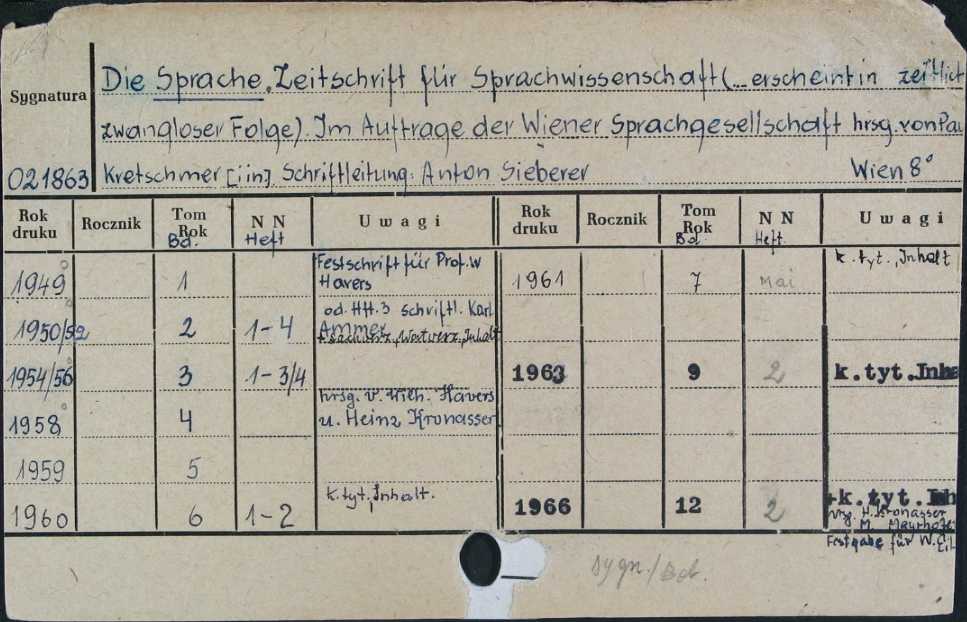 Die Sprache. Zeitschrift für Sprachwissenschaft (... erscheint in zeitlich
Sygnatura
zwangloser Folge). Im Auftrage der Wiener Sprachgesellschaft hrsg. von Pau
021863 Kretschmer [i in]. Schriftleitung: Anton Sieberer Wien 8°
Rok druku Rocznik Tom Rok Bd. N N Heft Uwagi Rok druku Rocznik Tom Rok Bd. N N Heft. Uwagi
k. tyt., Inhalt
Festschrift für Prof. W
1949 1 Havers 1961 7 Mai
od. Hft. 3 Schriftl. Karl
1950/52 2 1-4 Ammer
+ Sachverz., Wortverz., Inhalt
1954/56 3 1-3/4 1963 9 2 k.tyt.Inha
hrsg. v. Wilh. Havers
1958 4 u. Heinz Kronasser
1959 5
k. tyt., Inhalt.
1960 6 1-2 1966 12 2 +k.tyt.Inh
hrsg. H. Kronasser
M. Mayrhofer
Festgabe für W. Eil
sygn./Bd.